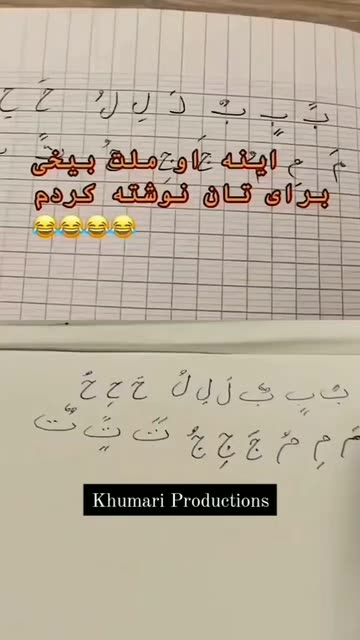 بً بٍ بٌ لَ لِ لُ حَ حِ
مَ مِ
اینه او ملت بیخی
برای تان نوشته کردم
😂😂😂😂
بً بٍ بٌ لَ لِ لُ حَ حِ حُ
مَ مِ مُ جَ جِ جُ تً تٍ تٌ
Khumari Productions